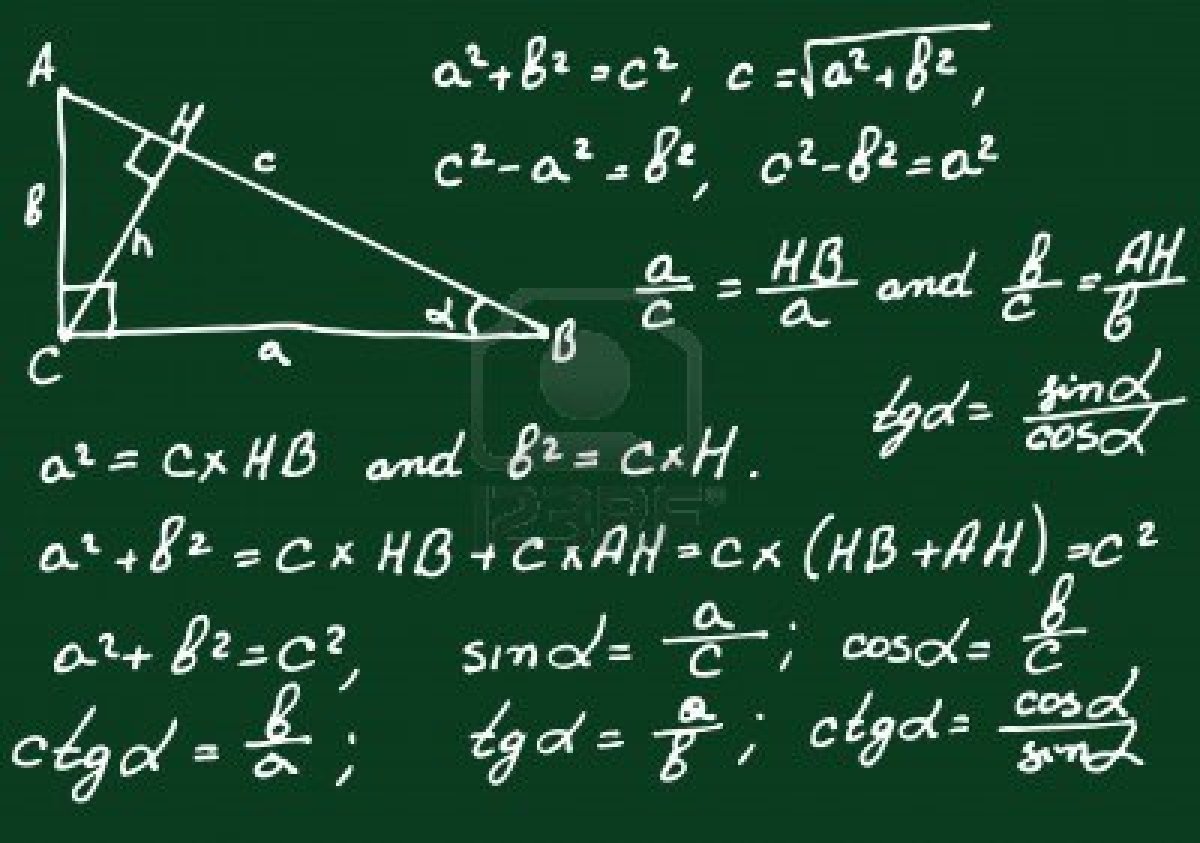 A
H
c
в
h
α
C
a
B
a² + в² = c², c = √(a² + в²),
c² - a² = в², c² - в² = a²
a/c = HB/a and в/c = AH/в
tgα = sinα/cosα
a² = c × HB and в² = c × H.
a² + в² = c × HB + c × AH = c × (HB + AH) = c²
a² + в² = c², sinα = a/c; cosα = в/c,
ctgα = в/a; tgα = a/в; ctgα = cosα/sinα
123RF